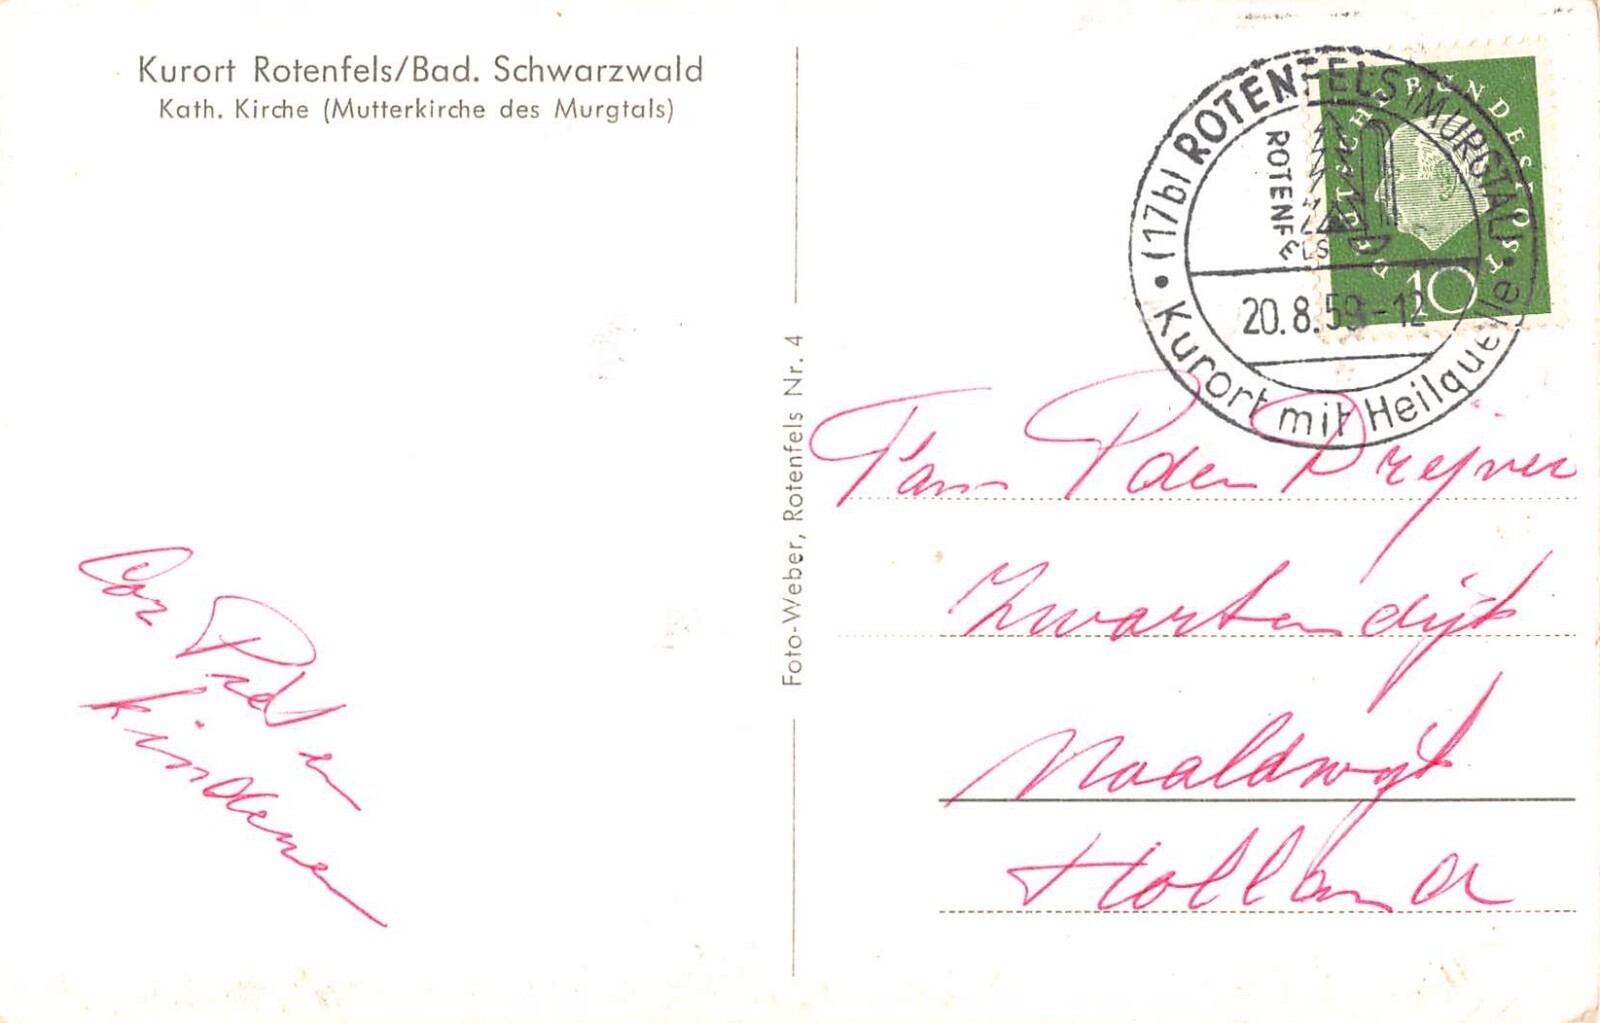 Kurort Rotenfels/Bad. Schwarzwald
Kath. Kirche (Mutterkirche des Murgtals)
Foto-Weber, Rotenfels Nr. 4
DEUTSCHE BUNDESPOST
10
(17b) ROTENFELS (MURGTAL)
ROTENFELS
20.8.59-12
Kurort mit Heilquelle
Fam P den Drijver
Zwartendijk
Naaldwijk
Holland
Cor
en
kinderen